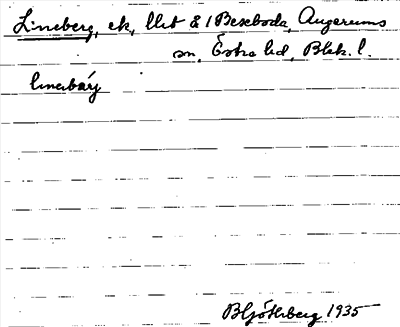 Lineberg, ek, llet å 1 Beseboda, Augerums
sn, Östra hd, Blek. l.
linerbärj
B Götherberg 1935